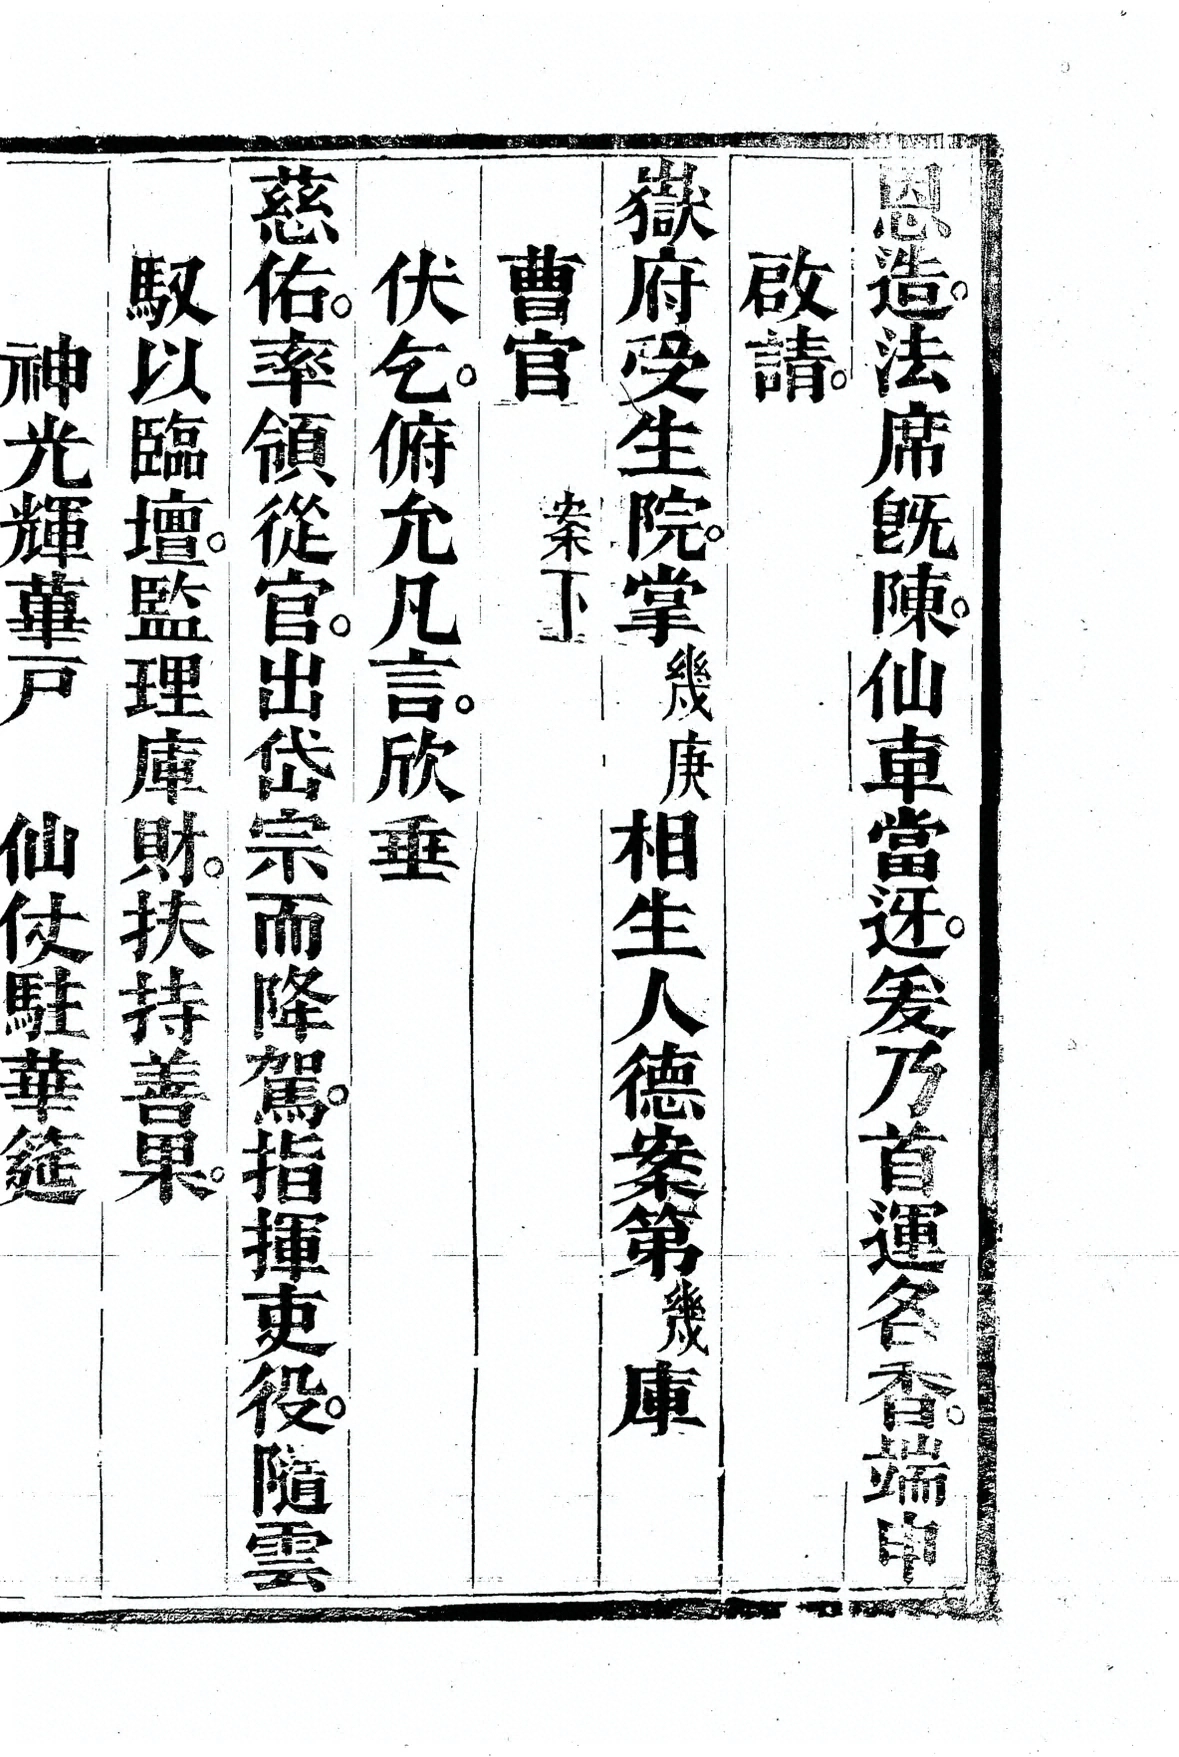 恩造。法席旣陳。仙車當迓。爰乃首運名香。端申
啟請。
嶽府受生院。掌幾庚相生人德案第幾庫
曹官 案下
伏乞。俯允凡言。欣垂
慈佑。率領從官。出岱宗而降駕。指揮吏役。隨雲
馭以臨壇。監理庫財。扶持善果。
神光輝蓽戸 仙仗駐華筵